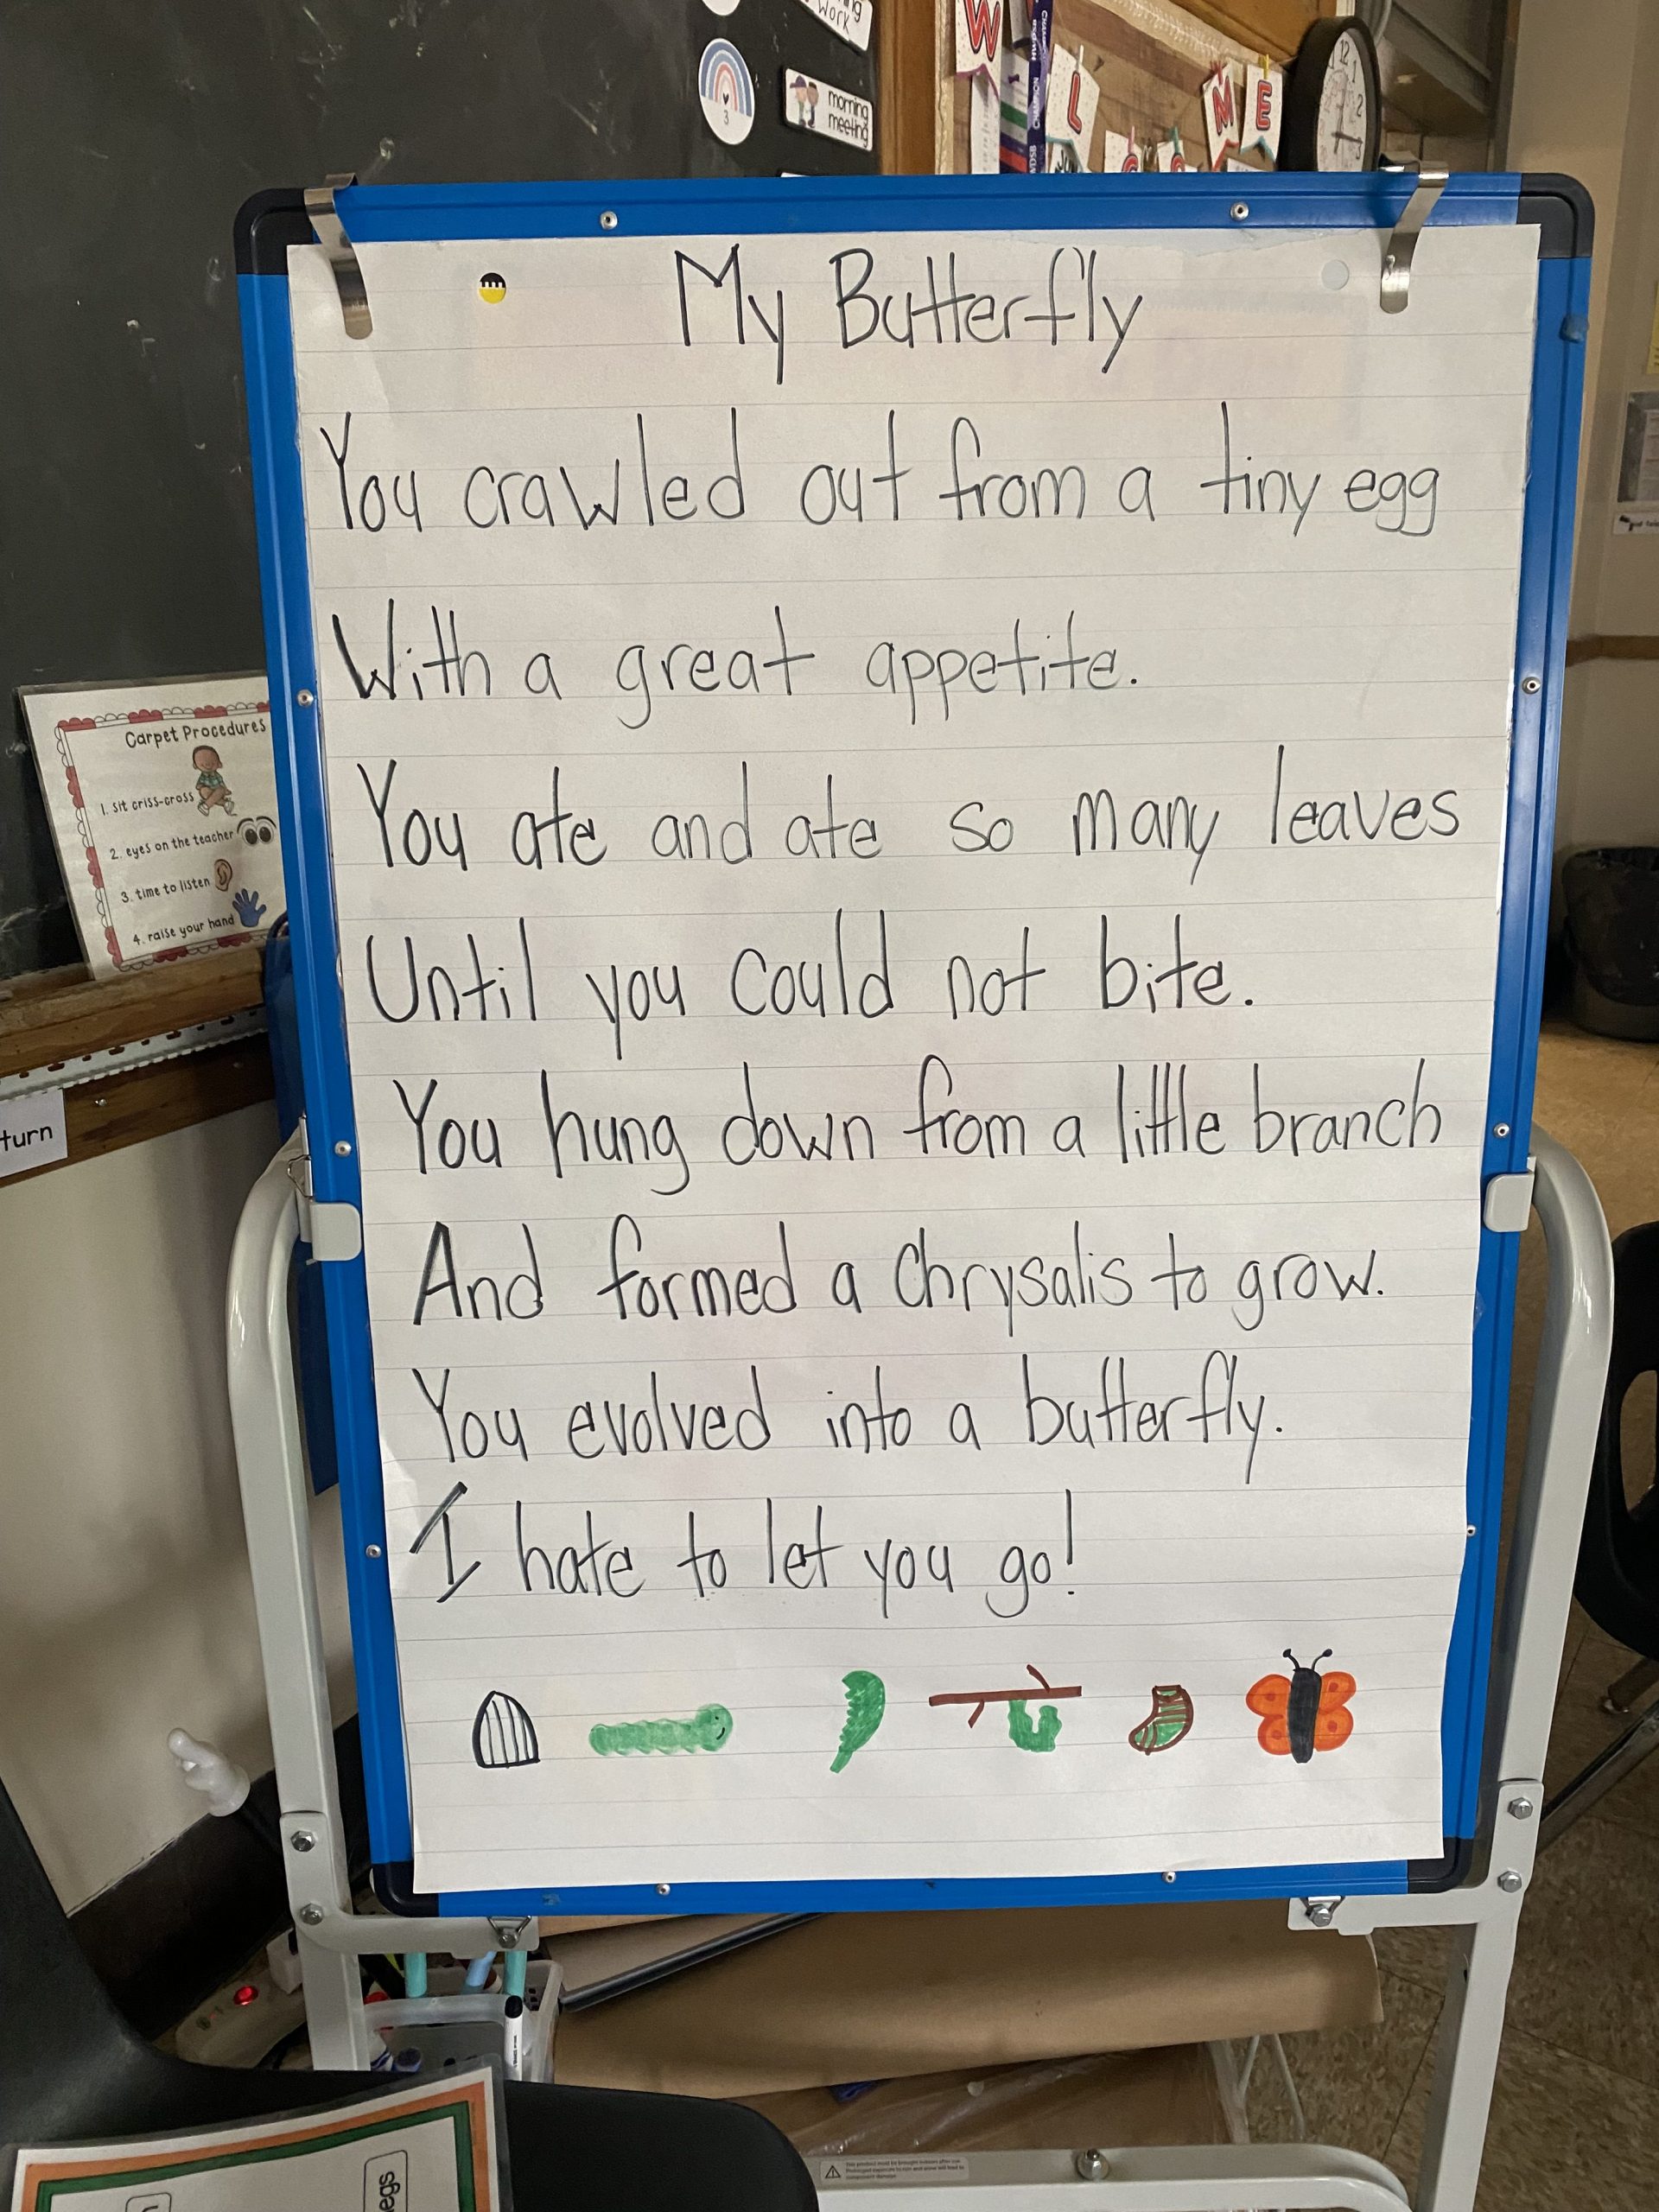 work
3
morning
meeting
W L M E
CHAMPION
12
1
2
3
My Butterfly
You crawled out from a tiny egg
With a great appetite.
You ate and ate so many leaves
Until you could not bite.
You hung down from a little branch
And formed a Chrysalis to grow.
You evolved into a butterfly.
I hate to let you go!
Carpet Procedures
1. sit criss-cross
2. eyes on the teacher
3. time to listen
4. raise your hand
turn
egs